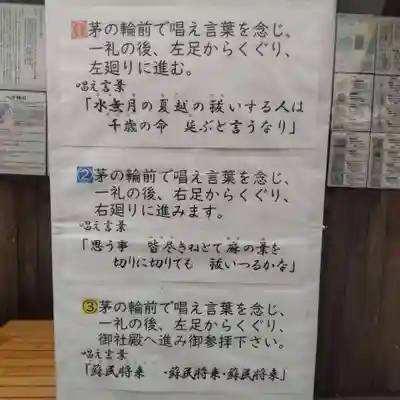 ①茅の輪前で唱え言葉を念じ、
一礼の後、左足からくぐり、
左廻りに進む。
唱え言葉
「水無月の夏越の祓いする人は
千歳の命 延ぶと言うなり」
②茅の輪前で唱え言葉を念じ、
一礼の後、右足からくぐり、
右廻りに進みます。
唱え言葉
「思う事 皆尽きねとて麻の葉を
切りに切りても 祓いつるかな」
③茅の輪前で唱え言葉を念じ、
一礼の後、左足からくぐり、
御社殿へ進み御参拝下さい。
唱え言葉
「蘇民将来・蘇民将来・蘇民将来」